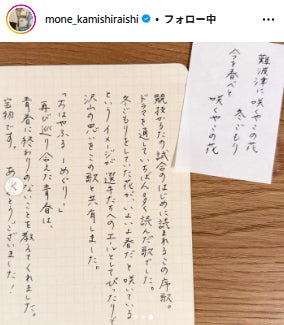 mone_kamishiraishi • フォロー中
難波津に 咲くやこの花
冬ごもり
今を春べと
咲くやこの花
競技かるたの試合のはじめに読まれるこの序歌。
ドラマを通していちばん多く読んだ歌でした。
冬ごもりをしていた花が、いよいよ春だと咲いている
というイメージが選手たちへのエールとしてぴったりで
沢山の思いをこの歌と共有しました。
「ちはやふる ーめぐりー」
再び巡り合えた青春は、
青春に終わりのないことを教えてくれました。
宝物です。 ありがとうございました！